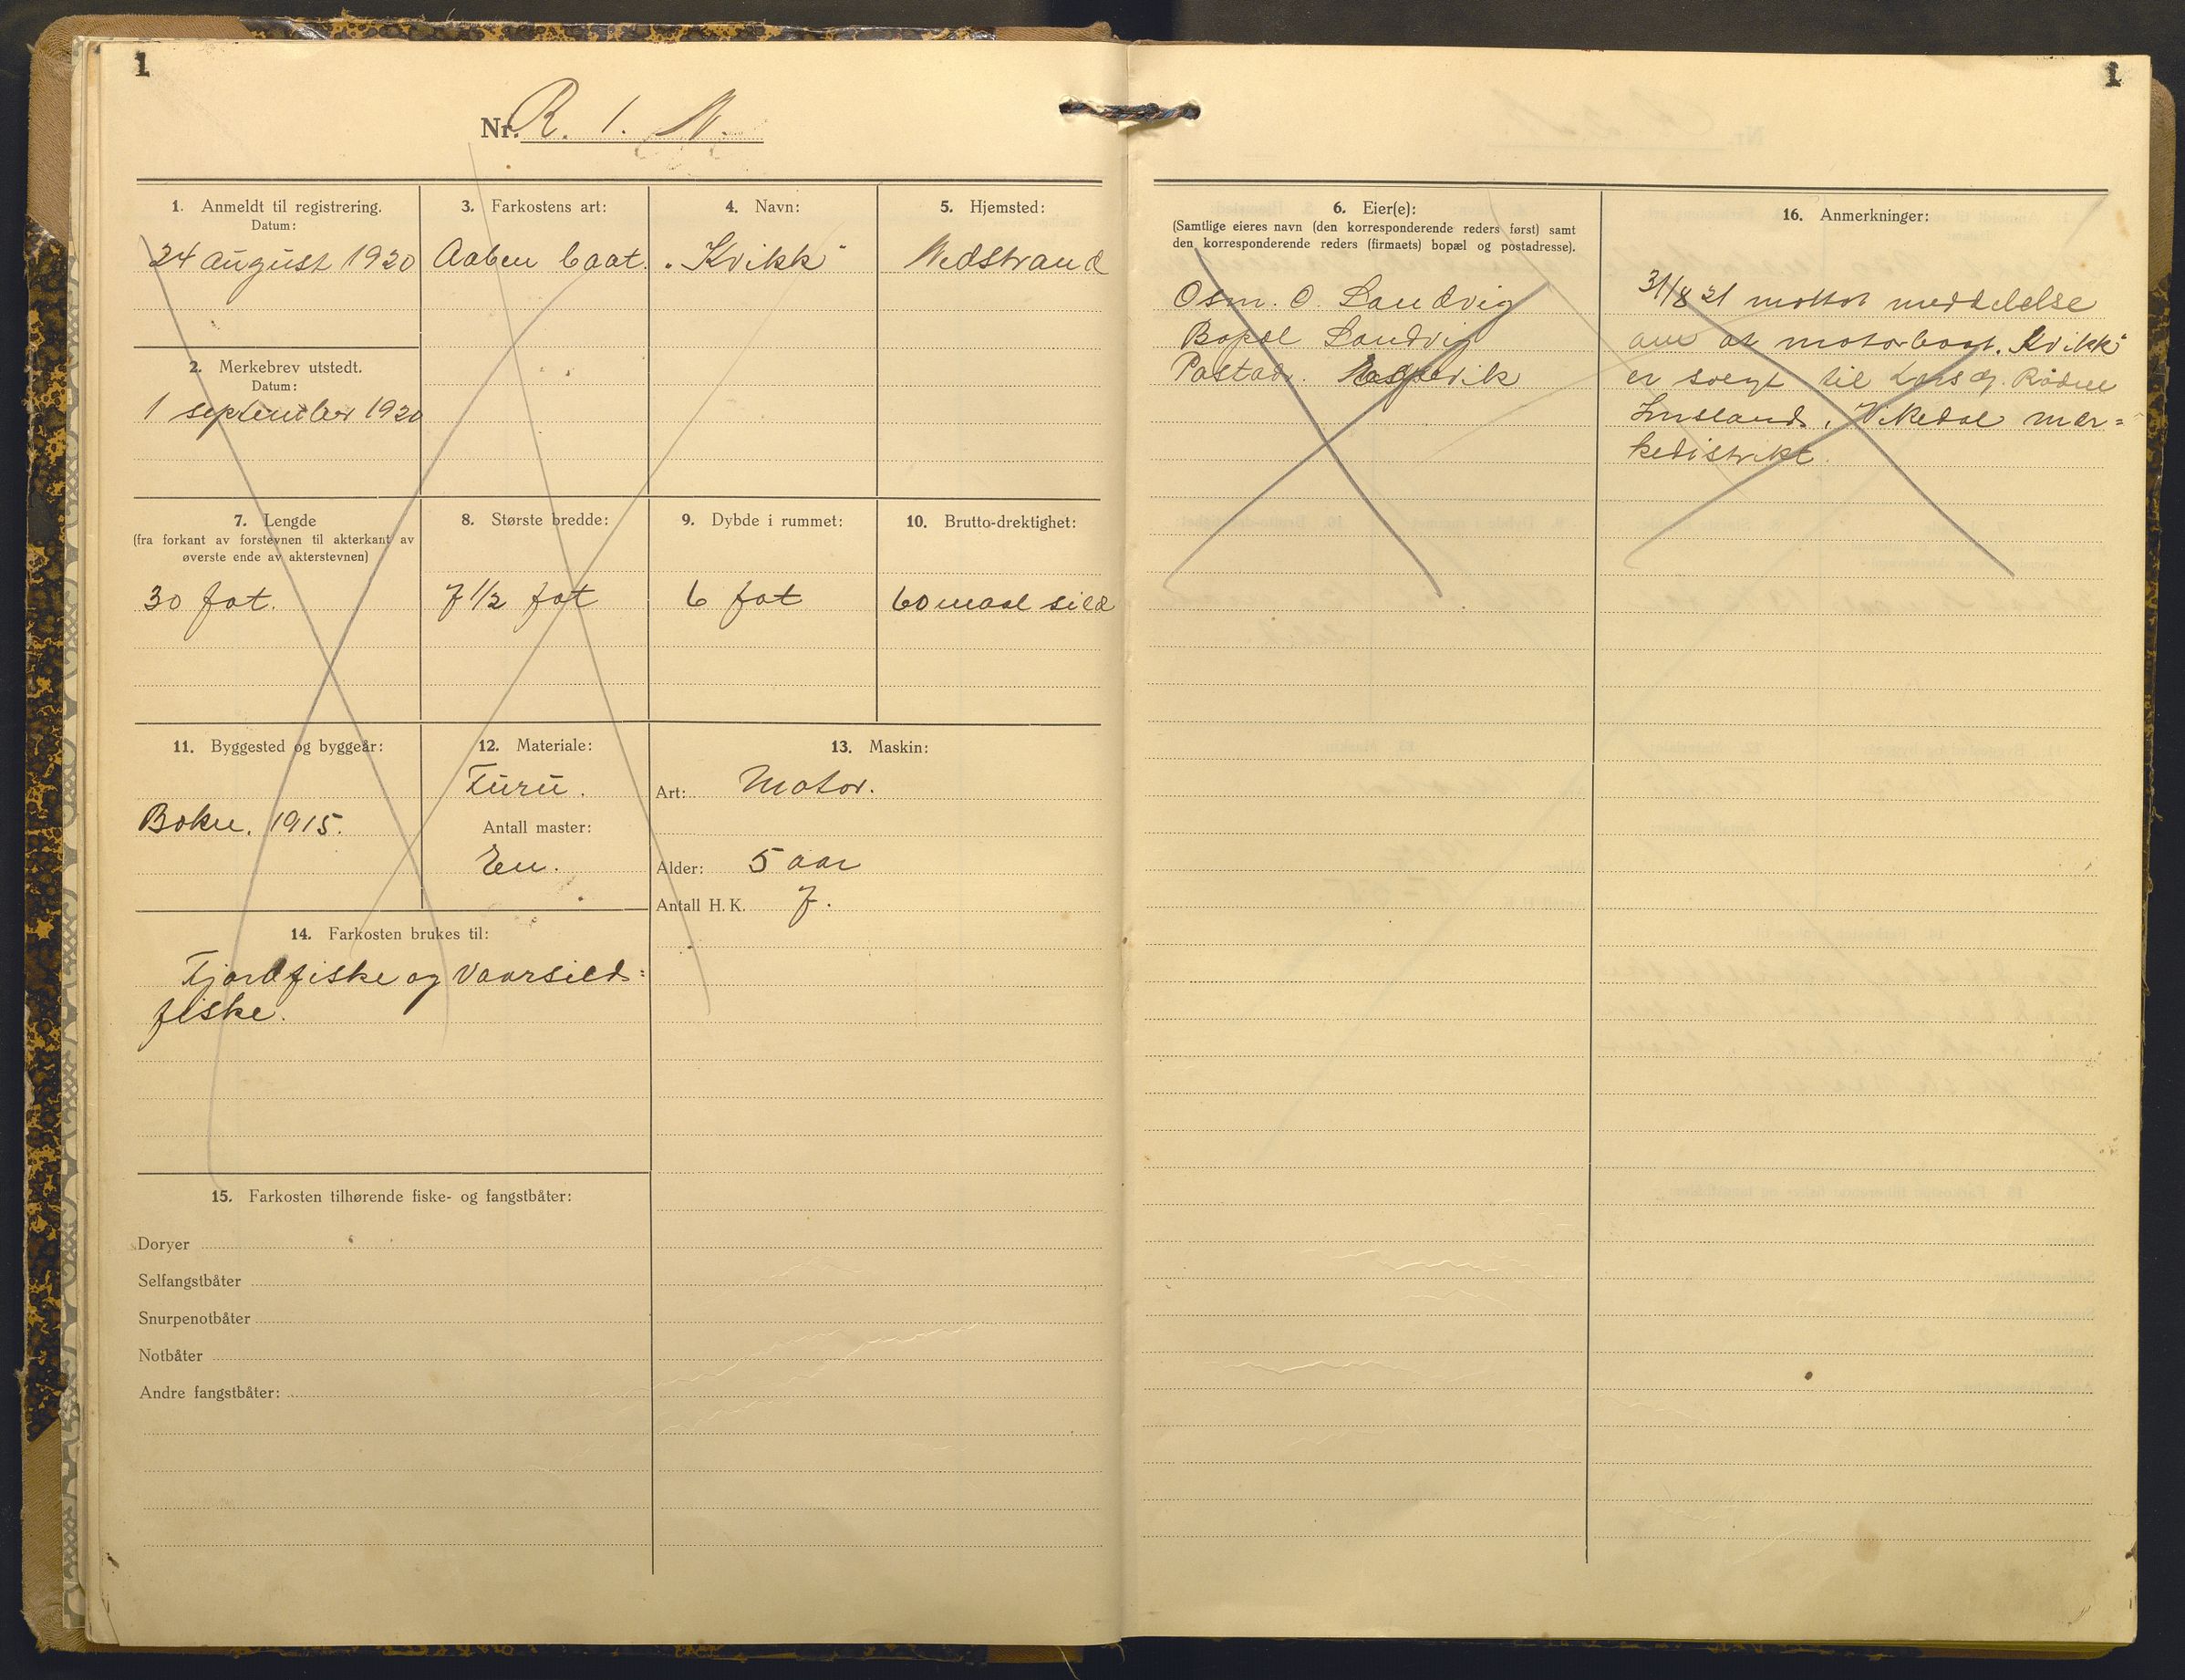 1
1
Nr. R. 1. N.
1. Anmeldt til registrering.
Datum:
24 august 1920
2. Merkebrev utstedt.
Datum:
1 september 1920
3. Farkostens art:
Aaben baat.
4. Navn:
"Kvikk"
5. Hjemsted:
Nedstrand
7. Lengde
(fra forkant av forstevnen til akterkant av
øverste ende av akterstevnen)
30 fot.
8. Største bredde:
7 1/2 fot
9. Dybde i rummet:
6 fot
10. Brutto-drektighet:
60 maal sild
11. Byggested og byggeår:
Bokn. 1915.
12. Materiale:
Furu.
Antall master:
En.
13. Maskin:
Art: Motor.
Alder: 5 aar
Antall H. K. 7.
14. Farkosten brukes til:
Fjordfiske og Vaarsild=
fiske.
15. Farkosten tilhørende fiske- og fangstbåter:
Doryer
Selfangstbåter
Snurpenotbåter
Notbåter
Andre fangstbåter:
6. Eier(e):
(Samtlige eieres navn (den korresponderende reders først) samt
den korresponderende reders (firmaets) bopæl og postadresse).
Osm. O. Sandvig
Bopæl Sandvig
Postadr.
16. Anmerkninger:
31/8 21 mottat meddelelse
om at motorbaat. Kvikk"
er solgt til Lars Rødne
Imsland, Vikedal mer=
kedistrikt